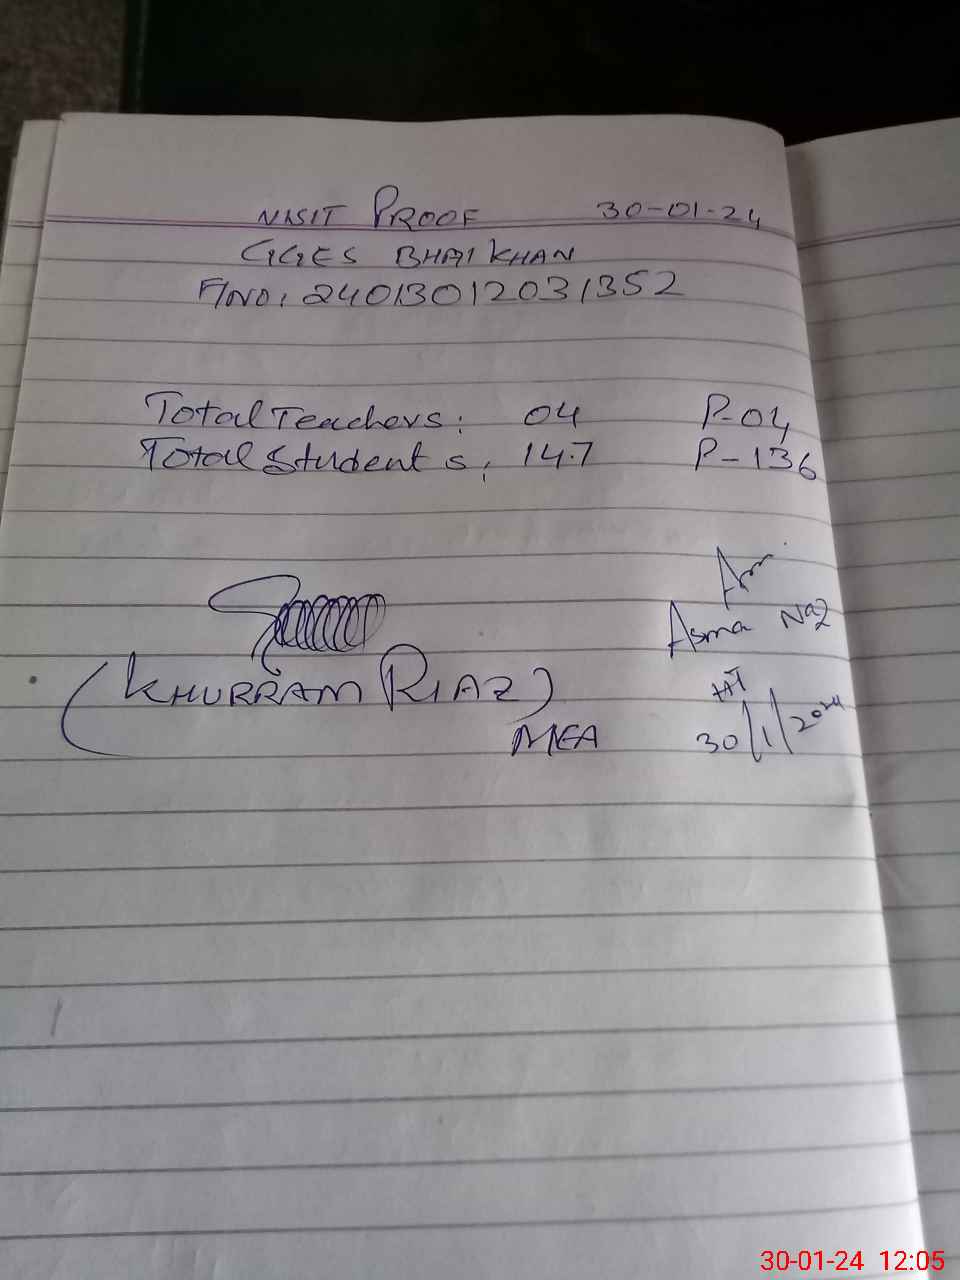 VISIT PROOF 30-01-24
GGES BHAI KHAN
F/NO: 24013012031352
Total Teachers: 04 P-04
Total Students, 147 P-136
Asma Naz
(KHURRAM RIAZ)
HT
MEA 30/1/2024
30-01-24 12:05